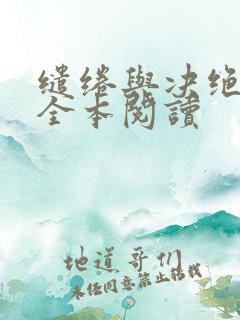 缱绻與决绝
全本閱讀
地道哥们
未经同意禁止转载